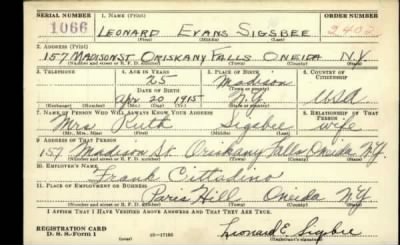 SERIAL NUMBER 1. NAME (Print) ORDER NUMBER
1066 LEONARD EVANS SIGSBEE 2402
(First) (Middle) (Last)
2. ADDRESS (Print)
157 MADISON ST ORISKANY FALLS ONEIDA N.Y.
(Number and street or R. F. D. number) (Town) (County) (State)
3. TELEPHONE 4. AGE IN YEARS 5. PLACE OF BIRTH 6. COUNTRY OF CITIZENSHIP
25 Madison
DATE OF BIRTH (Town or county)
Apr 20 1915 N.Y. USA
(Exchange) (Number) (Mo.) (Day) (Yr.) (State or country)
7. NAME OF PERSON WHO WILL ALWAYS KNOW YOUR ADDRESS 8. RELATIONSHIP OF THAT PERSON
Mrs Ruth Sigsbee wife
(Mr., Mrs., Miss) (First) (Middle) (Last)
9. ADDRESS OF THAT PERSON
157 Madison St. Oriskany Falls Oneida N.Y.
(Number and street or R. F. D. number) (Town) (County) (State)
10. EMPLOYER'S NAME
Frank Cittadino
11. PLACE OF EMPLOYMENT OR BUSINESS
Paris Hill Oneida N.Y.
(Number and street or R. F. D. number) (Town) (County) (State)
I AFFIRM THAT I HAVE VERIFIED ABOVE ANSWERS AND THAT THEY ARE TRUE.
REGISTRATION CARD
D. S. S. Form 1 16—17105 Leonard E. Sigsbee
(Registrant's signature)